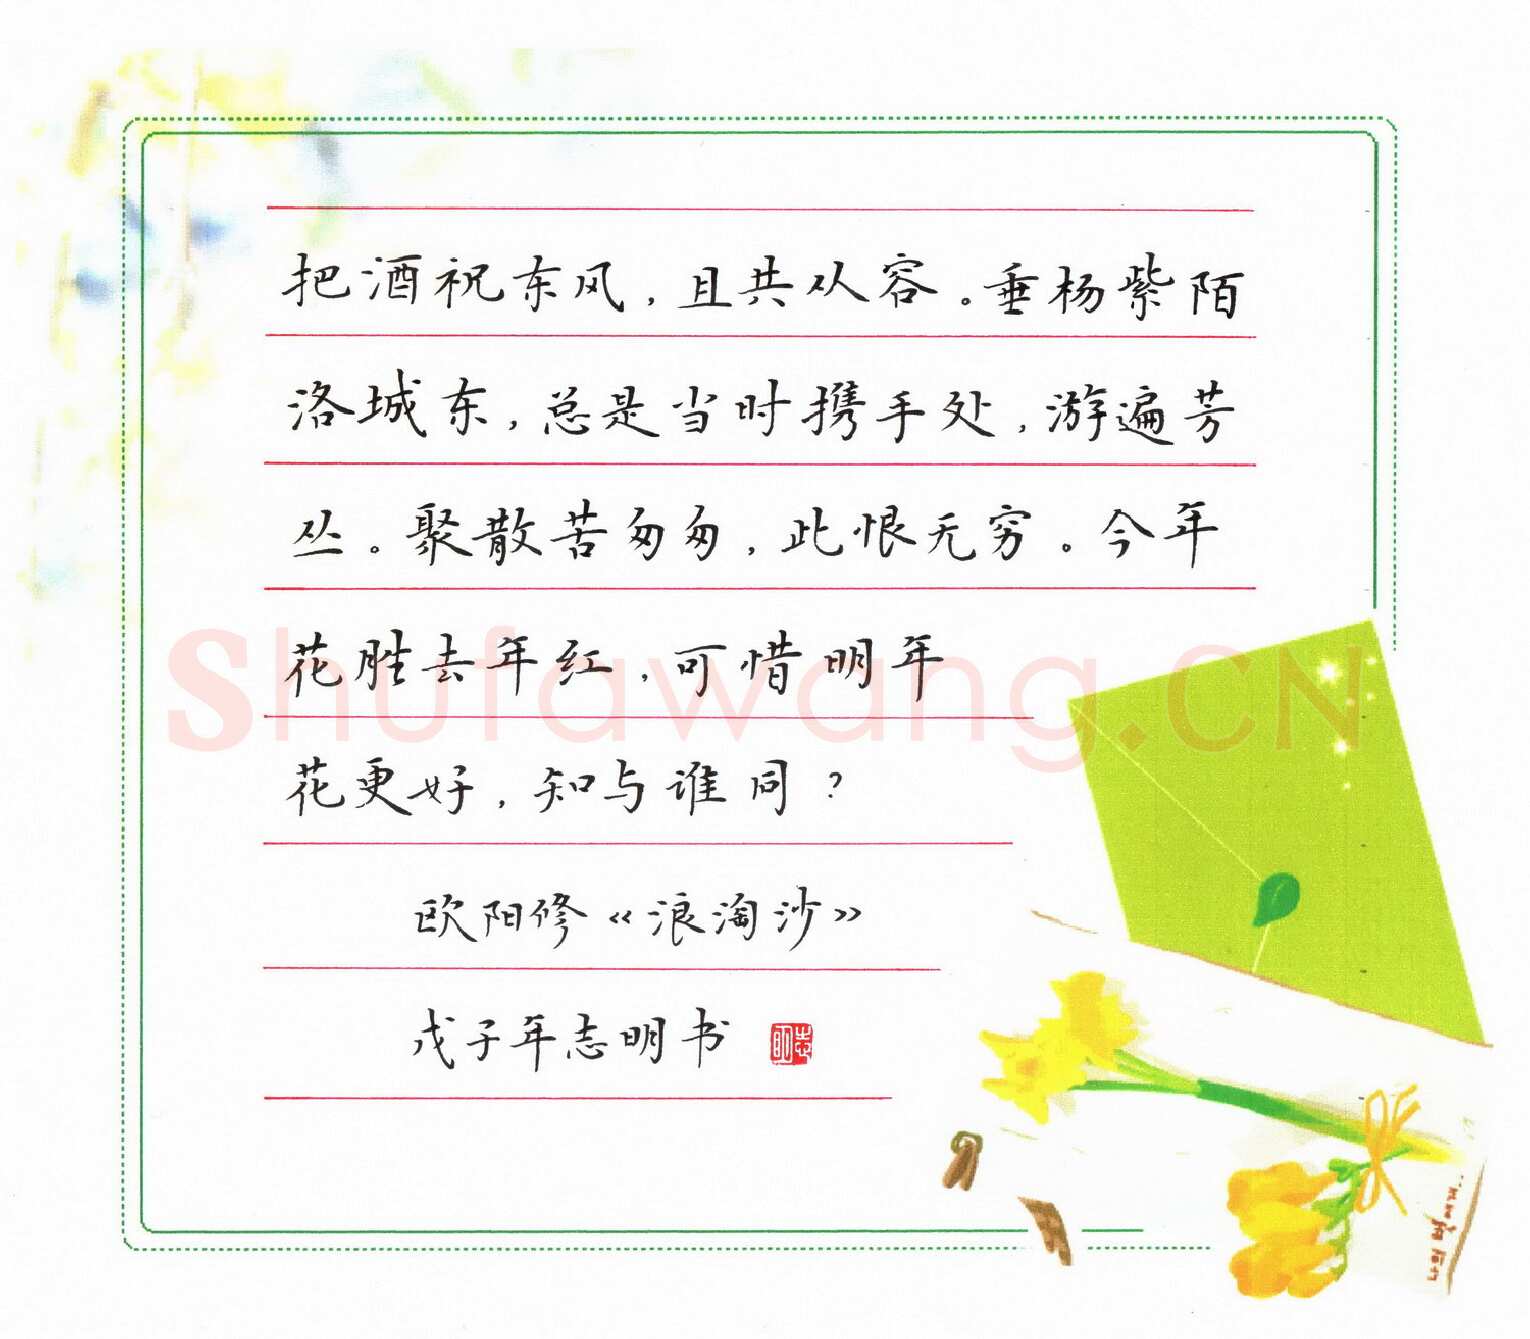 把酒祝东风，且共从容。垂杨紫陌
洛城东，总是当时携手处，游遍芳
丛。聚散苦匆匆，此恨无穷。今年
花胜去年红，可惜明年
花更好，知与谁同？
欧阳修《浪淘沙》
戊子年志明书
志明
Shufawang.CN